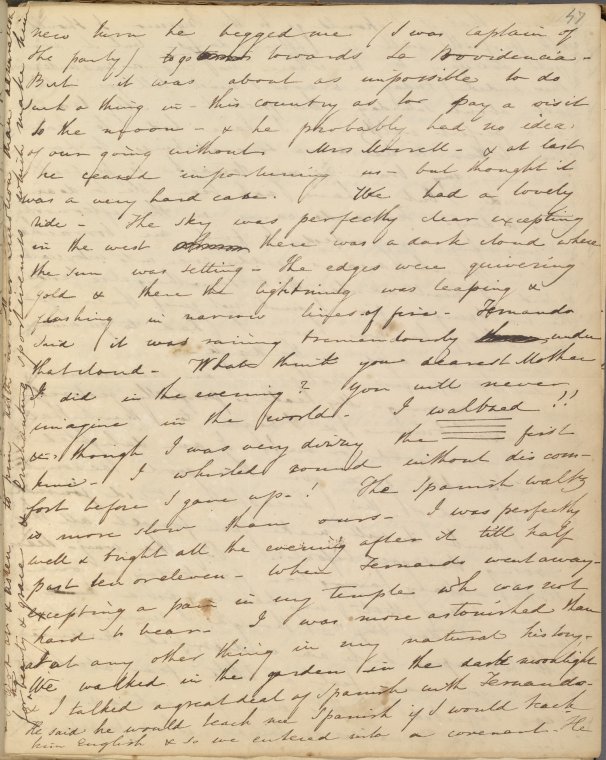 57
new turn he begged me (I was captain of
the party) to go towards La Providencia -
But it was about as impossible to do
such a thing in this country as too pay a visit
to the moon - & he probably had no idea
of our going without Mrs Morrell - & at last
he ceased importuning us - but thought it
was a very hard case. We had a lovely
ride - The sky was perfectly clear excepting
in the west there was a dark cloud where
the sun was setting - The edges were quivering
gold & there the lightning was leaping &
flashing in narrow lines of fire - Fernando
said it was raining tremendously under
that cloud - What think you dearest Mother
I did in the evening? You will never
imagine in the world - I waltzed!!
& though I was very dizzy the first
time - I whirled round without discom-
fort before I gave up -! The Spanish waltz
is more slow than ours - I was perfectly
well & bright all the evening after it till half
past ten or eleven - when Fernando went away -
excepting a pain in my temple wh was not
hard to bear - I was more astonished than
at any other thing in my natural history -
We walked in the garden in the dark moonlight
& I talked a great deal of Spanish with Fernando -
he said he would teach me Spanish if I would teach
him English & so we entered into a covenant - He